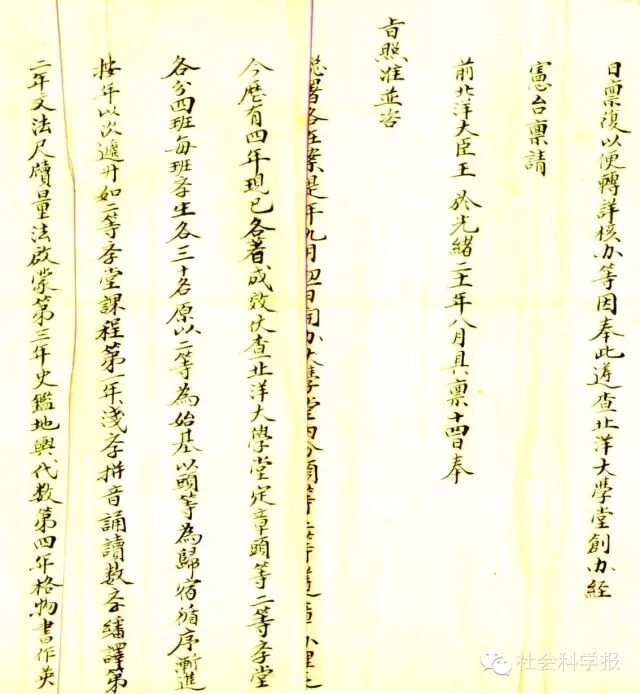 日稟復以便轉詳核办等因奉此遵查北洋大學堂創办經
憲台稟請
前北洋大臣王 於光緒二十一年八月具稟十四日奉
旨照准並咨
總署各在案是年九月初四日開办大學堂內分頭等二等
今歷有四年現已各著成效伏查北洋大學堂定章頭等二等斈堂
各分四班每班斈生各三十名原以二等為始基以頭等為歸宿循序漸進
按年以次遞升如二等斈堂課程第一年淺斈拼音誦讀数斈繙譯第
二年文法尺牘量法啟蒙第三年史鑑地輿代数第四年格物書作英
社会科学报